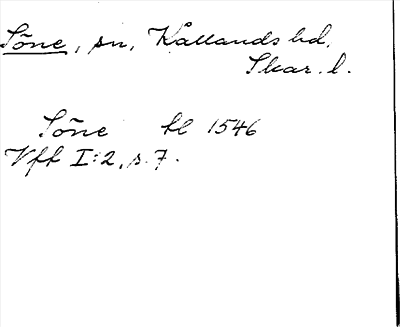 Söne, sn, Kållands hd,
Skar. l.
Söne hl 1546
Vff I:2, s. 7.